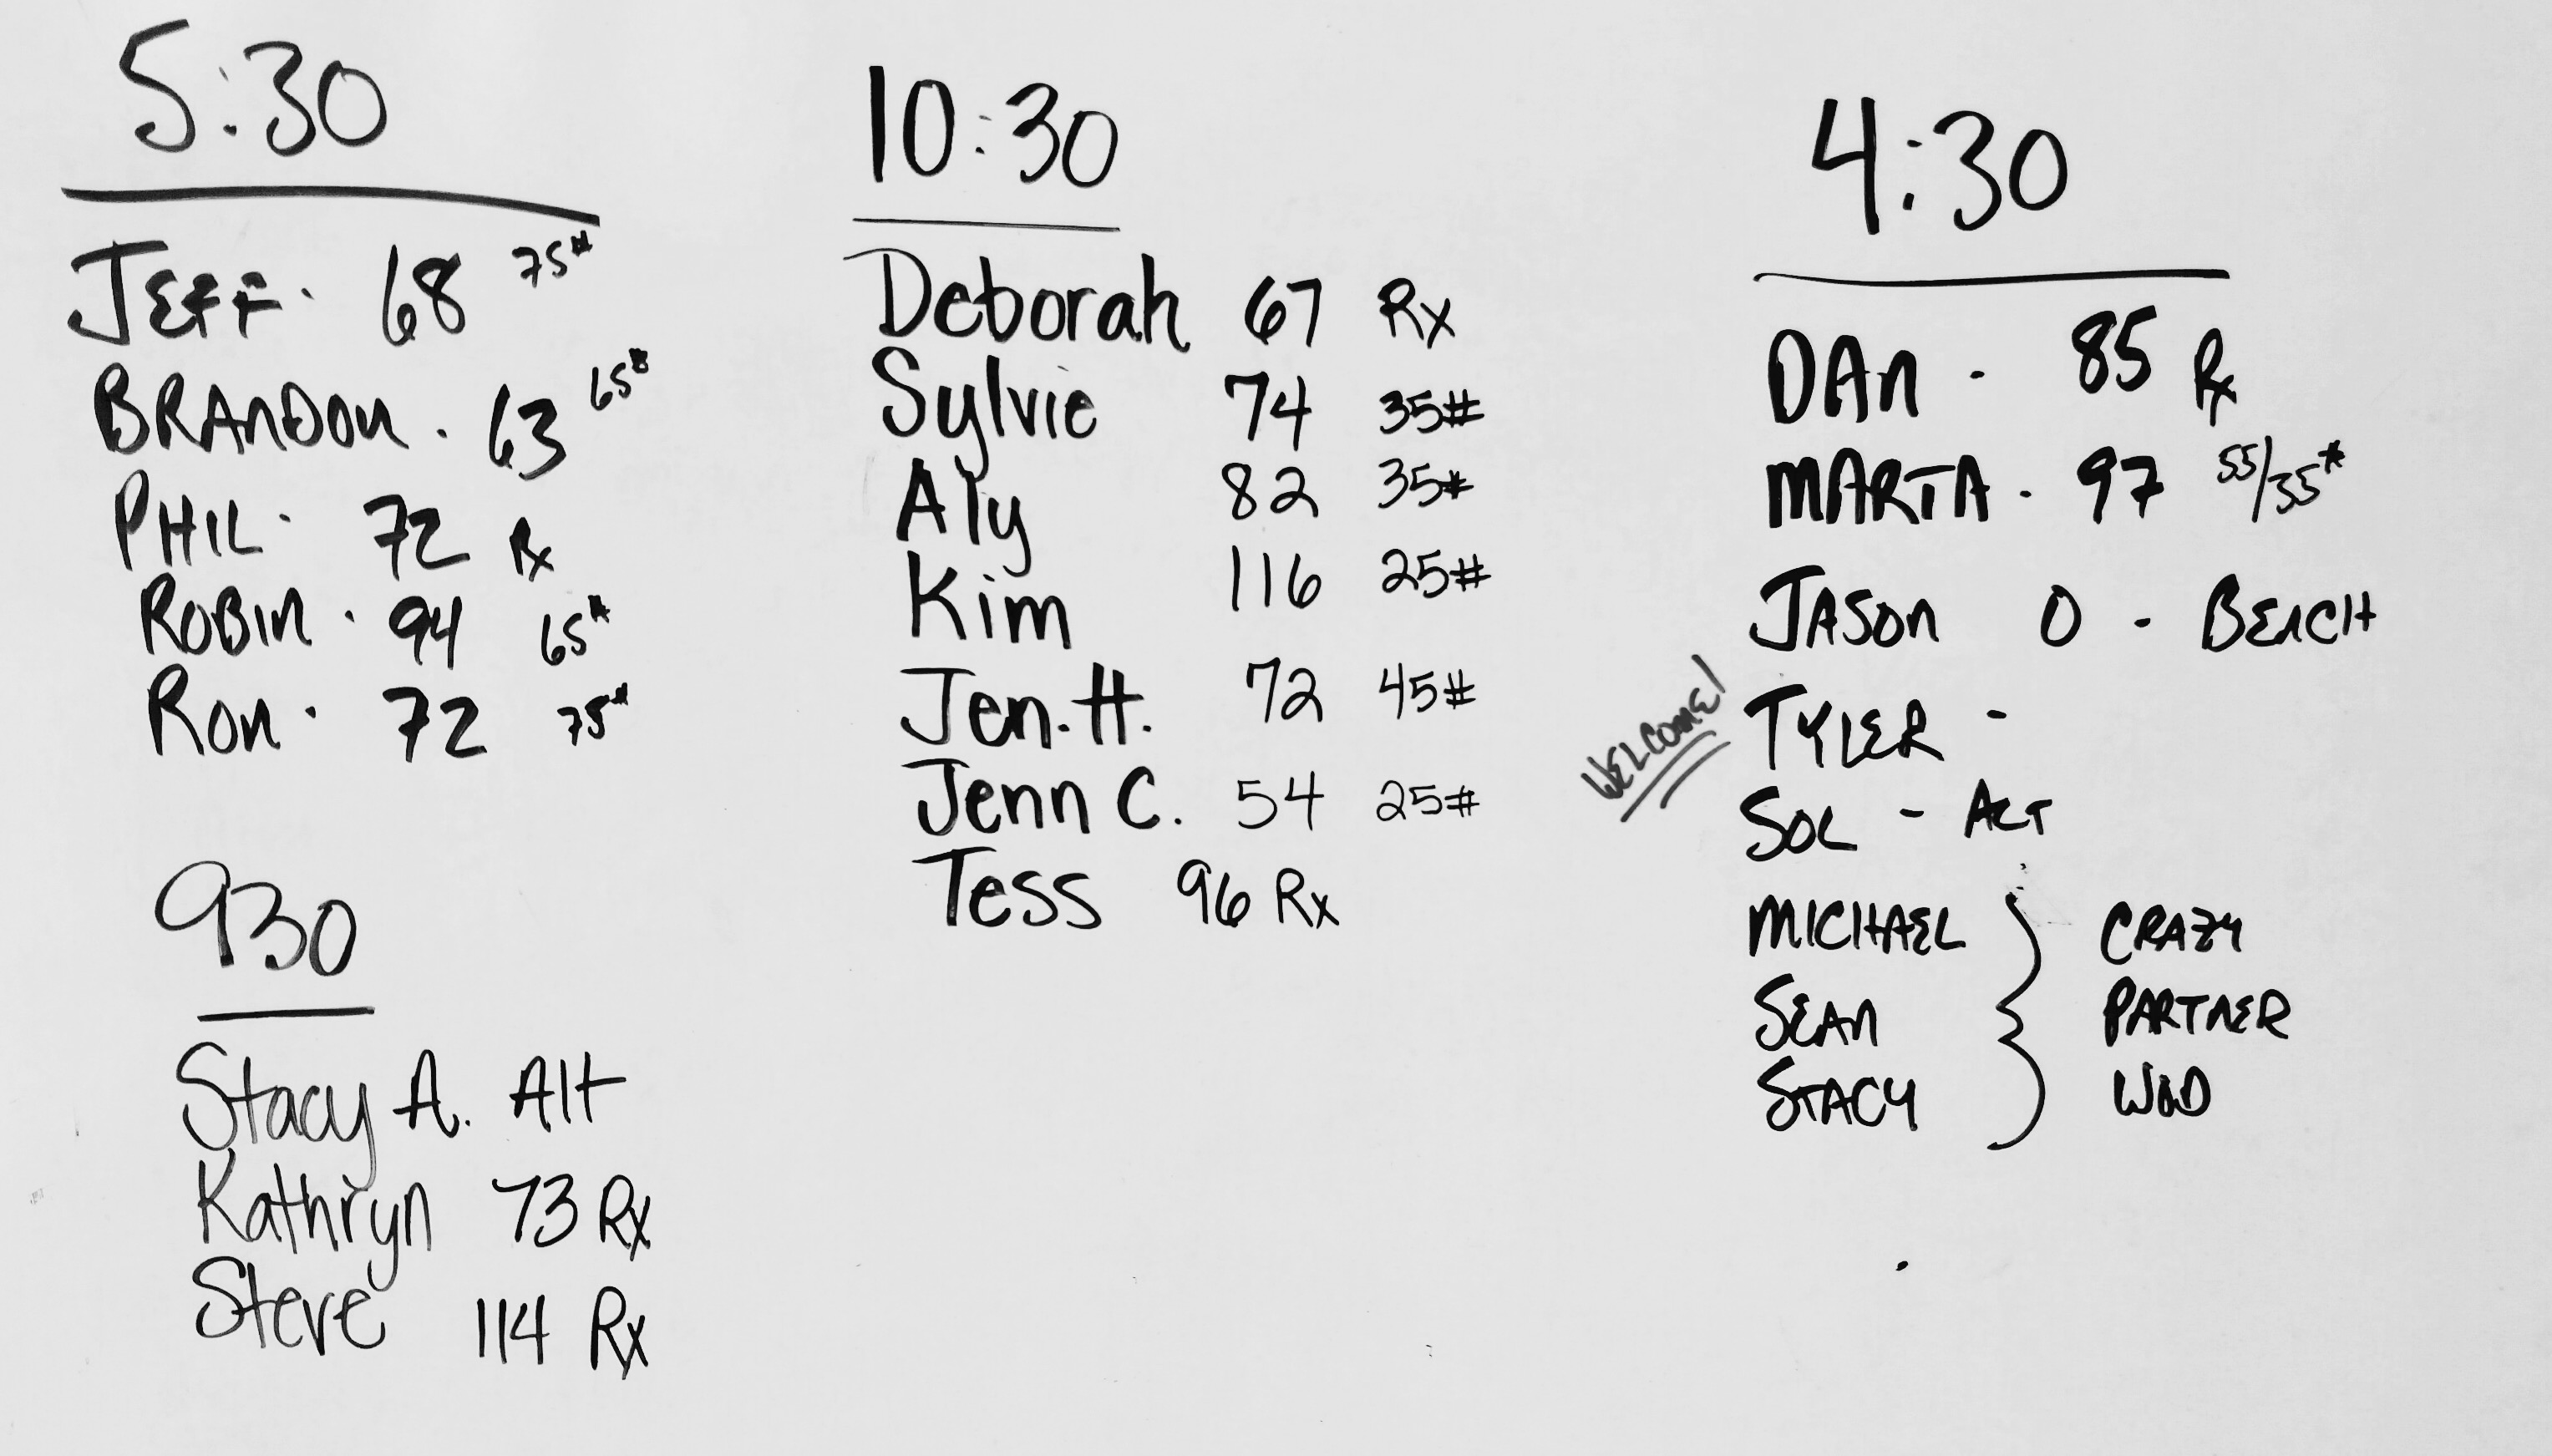 5:30
JEFF. 68 75#
BRANDON. 63 65#
PHIL. 72 Rx
ROBIN. 94 65#
RON. 72 75#
930
Stacy A. Alt
Kathryn 73 Rx
Steve 114 Rx
10:30
Deborah 67 Rx
Sylvie 74 35#
Aly 82 35#
Kim 116 25#
Jen. H. 72 45#
Jenn C. 54 25#
Tess 96 Rx
4:30
DAN - 85 Rx
MARTA. 97 55/35#
JASON 0 - BEACH
WELCOME! TYLER -
SOL - ALT
MICHAEL } CRAZY
SEAN } PARTNER
STACY } WOD